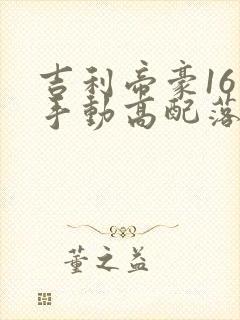 吉利帝豪16
手动高配落
董之益